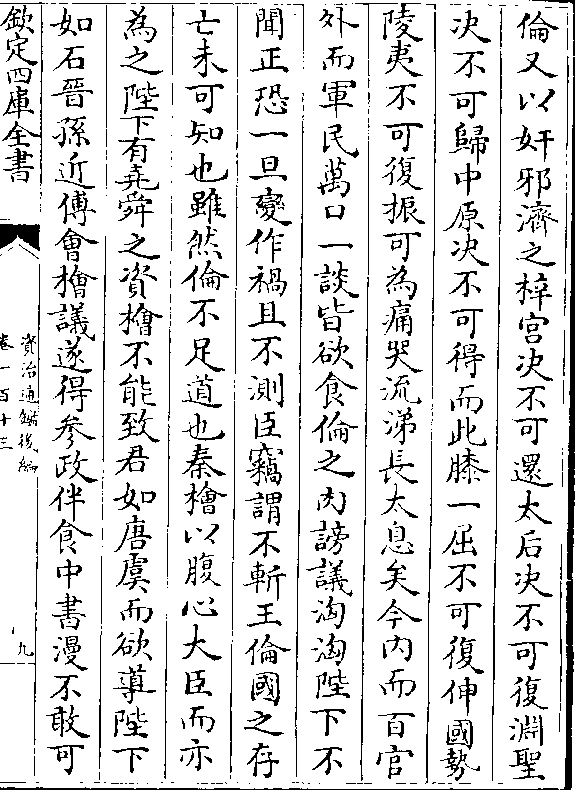 倫又以奸邪濟之梓宫决不可還太后决不可復淵聖
决不可歸中原决不可得而此膝一屈不可復伸國勢
陵夷不可復振可為痛哭流涕長太息矣今内而百官
外而軍民萬口一談皆欲食倫之肉謗議洶洶陛下不
聞正恐一旦變作禍且不測臣竊謂不斬王倫國之存
亡未可知也雖然倫不足道也秦檜以腹心大臣而亦
為之陛下有堯舜之資檜不能致君如唐虞而欲導陛下
如石晉孫近傅會檜議遂得參政伴食中書漫不敢可
欽定四庫全書
資治通鑑後編
卷一百十三
九